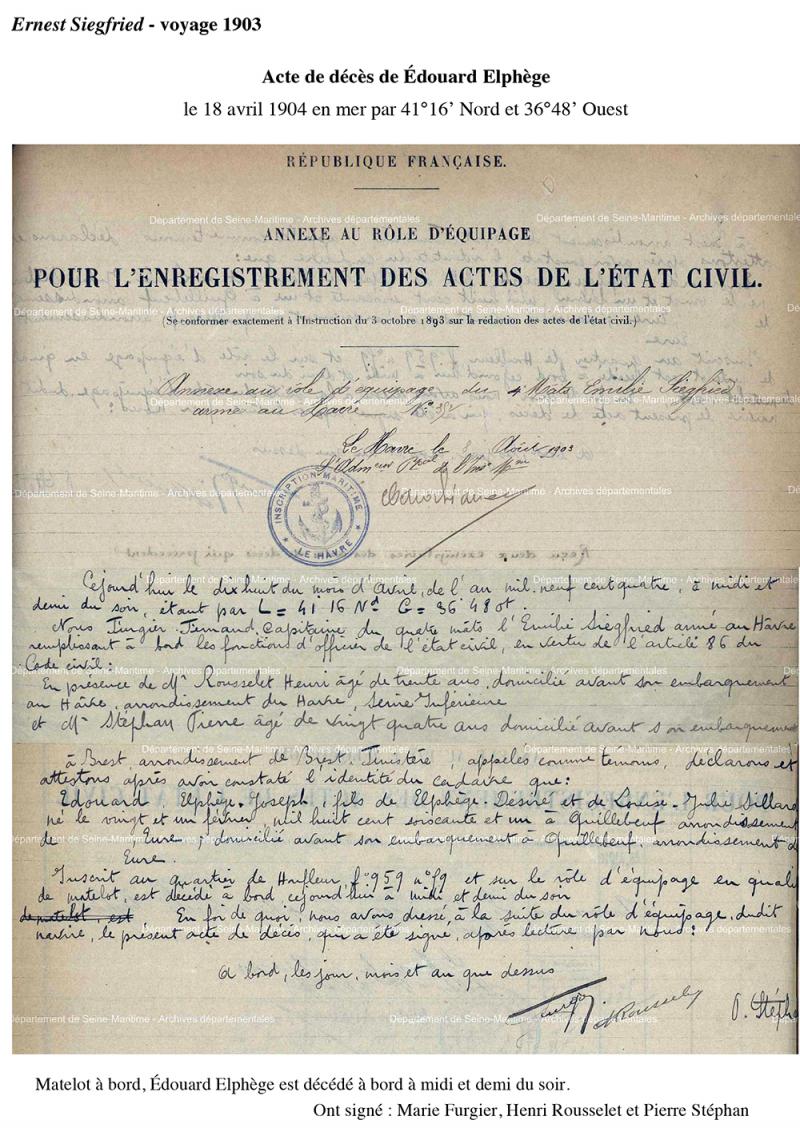 Ernest Siegfried - voyage 1903
Acte de décès de Édouard Elphège
le 18 avril 1904 en mer par 41°16’ Nord et 36°48’ Ouest
RÉPUBLIQUE FRANÇAISE.
Département de Seine-Maritime - Archives départementales
ANNEXE AU RÔLE D'ÉQUIPAGE
POUR L'ENREGISTREMENT DES ACTES DE L'ÉTAT CIVIL.
(Se conformer exactement à l'Instruction du 3 octobre 1893 sur la rédaction des actes de l'état civil.)
Annexe au rôle d'équipage du 4 Mats Emilie Siegfried
armé au Havre N°
Le Havre le Août 1903
INSCRIPTION MARITIME
LE HAVRE
Cejourd'hui le dix huit du mois d'Avril, de l'an mil neuf cent quatre, à midi et
demi du soir, étant par L = 41 16 Nd G = 36° 48 ot.
Nous Furgier Fernand Capitaine du quatre mâts l'Emilie Siegfried armé au Hâvre
remplissant à bord les fonctions d'officier de l'état civil, en vertu de l'article 86 du
Code civil:
En présence de Mr Rousselet Henri âgé de trente ans, domicilié avant son embarquement
au Hâvre, arrondissement du Havre, Seine Inférieure
et Mr Stéphan Pierre âgé de vingt quatre ans domicilié avant son embarquement
à Brest, arrondissement de Brest, Finistère, appelés comme témoins, déclarons et
attestons après avoir constaté l'identité du cadavre que:
Edouard Elphège Joseph, fils de Elphège Désiré et de Louise Julie Sillard
né le vingt et un février, mil huit cent soixante et un à Quillebeuf arrondissement
de Eure, domicilié avant son embarquement à Quillebeuf arrondissement d
Eure.
Inscrit au quartier de Honfleur f° 959 n° et sur le rôle d'équipage en quali
de matelot, est décédé à bord, cejourd'hui à midi et demi du soir
de matelot, est En foi de quoi, nous avons dressé, à la suite du rôle d'équipage, dudit
navire, le présent acte de décès, qui a été signé, après lecture par nous:
A bord, les jour, mois et an que dessus
Furgier H Rousselet P. Stépha
Matelot à bord, Édouard Elphège est décédé à bord à midi et demi du soir.
Ont signé : Marie Furgier, Henri Rousselet et Pierre Stéphan